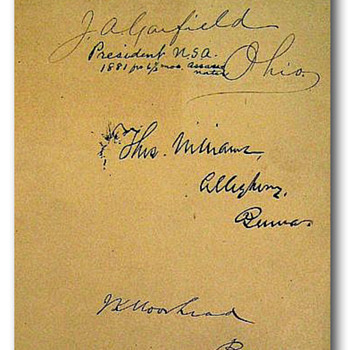 J. A. Garfield
Ohio.
President U.S.A.
1881 for 6½ mos. assassi
nated
Thos. Williams,
Allegheny,
Penna.
J K Moorhead